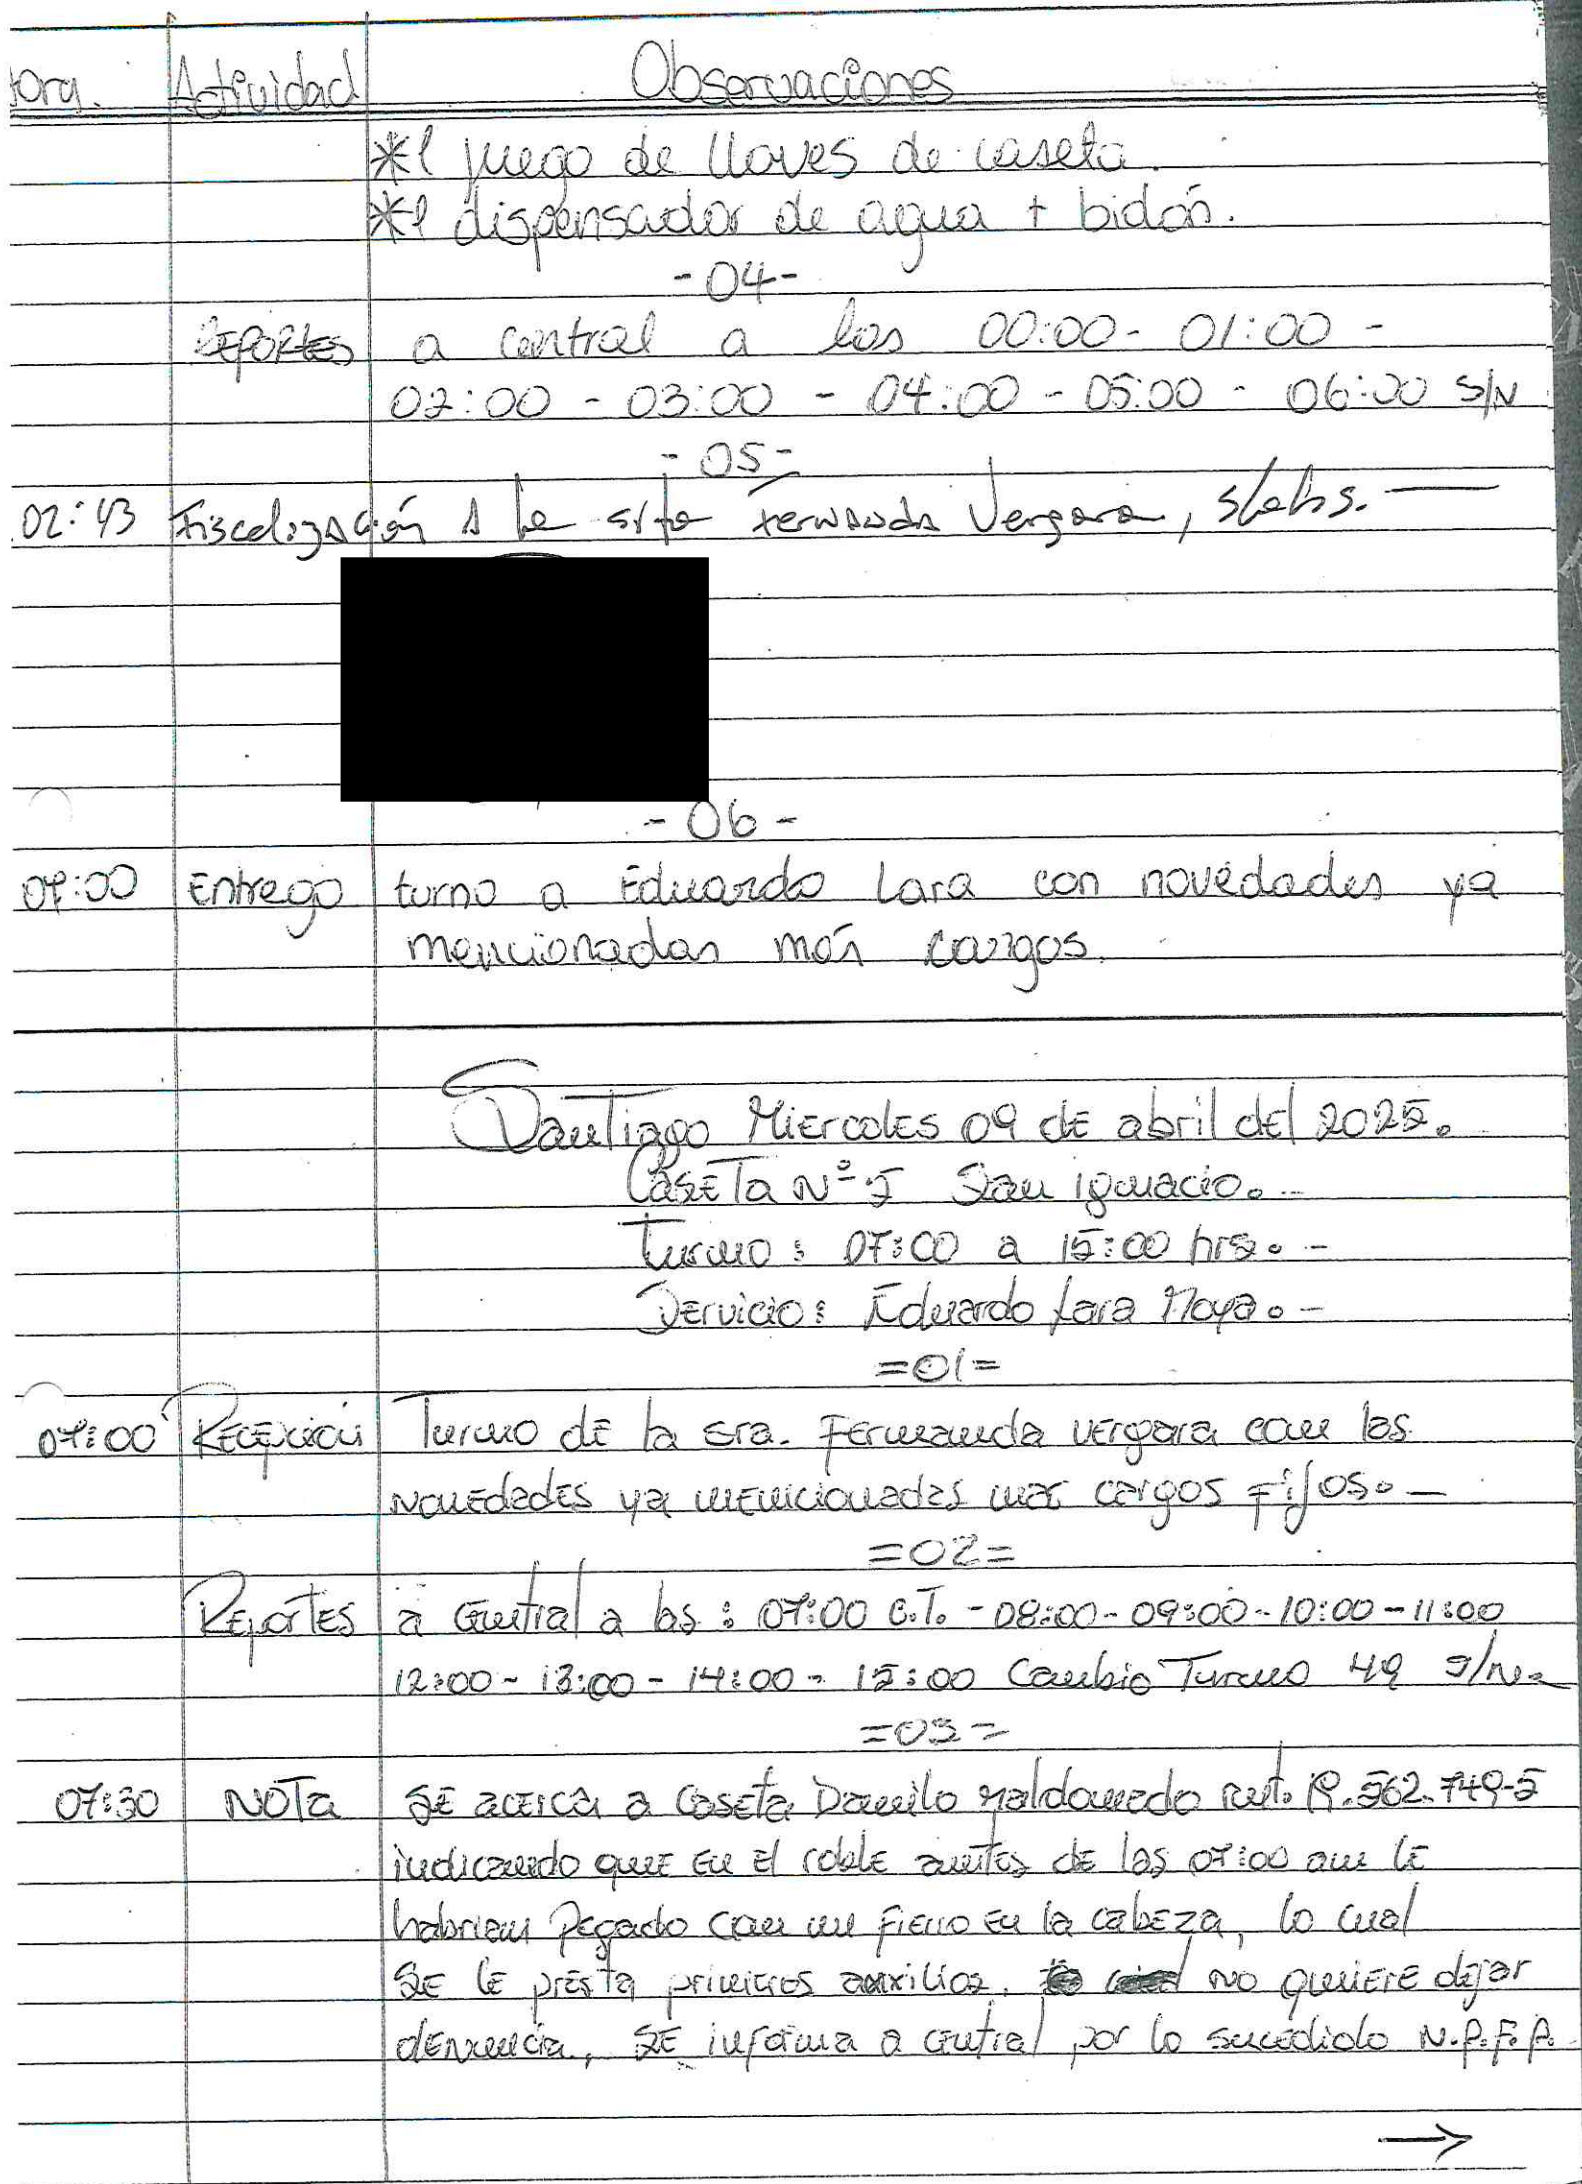 ora. Actividad Observaciones
*1 juego de llaves de caseta.
*1 dispensador de agua + bidón.
-04-
Reportes a central a las 00:00 - 01:00 -
02:00 - 03:00 - 04:00 - 05:00 - 06:00 S/N
-05-
02:43 Fiscalización a la srta Fernanda Vergara, s/obs.
-06-
07:00 Entrego turno a Eduardo Lara con novedades ya
mencionadas más cargos.
Santiago Miercoles 09 de abril del 2025.
Caseta Nº 5 San ignacio.-
Turno: 07:00 a 15:00 hrs.-
Servicio: Eduardo Lara Moya.-
=01=
07:00 Recepción Turno de la sra. Fernanda Vergara con las
novedades ya mencionadas mas cargos fijos.-
=02=
Reportes a Central a las: 07:00 C.T. - 08:00 - 09:00 - 10:00 - 11:00
12:00 - 13:00 - 14:00 - 15:00 Cambio Turno 49 S/N.-
=03=
07:30 NOTA SE acerca a Caseta Danilo Maldonado rut. 19.562.749-5
indicando que en el roble antes de las 07:00 am le
habrian Pegado con un fierro en la cabeza, lo cual
SE le presta primeros auxilios, NO quiere dejar
denuncia, SE informa a central por lo sucedido N.P.F.P.
→